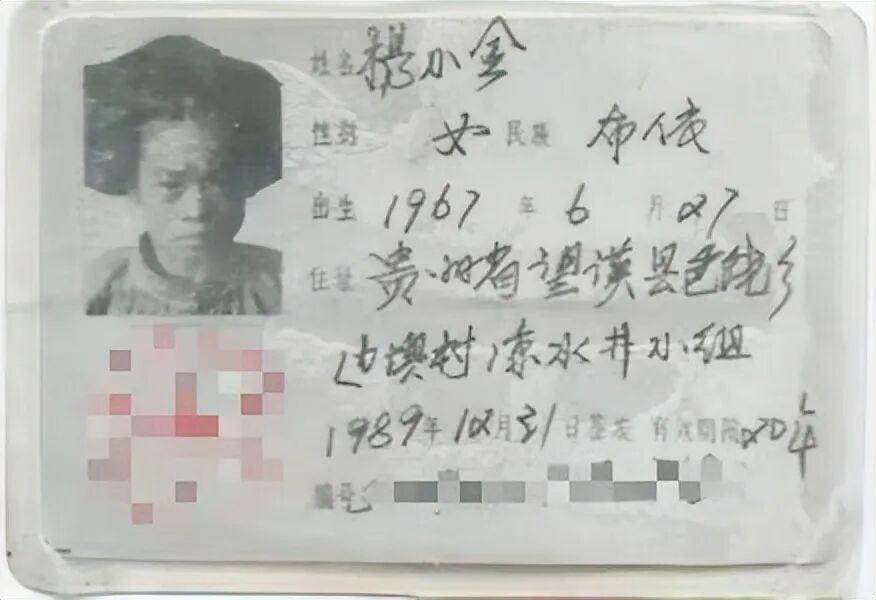 姓名 楊小金
性别 女 民族 布依
出生 1967 年 6 月 27 日
住址 贵州省望谟县乡
村凉水井小组
1989年12月31日签发 有效期限20年
编号